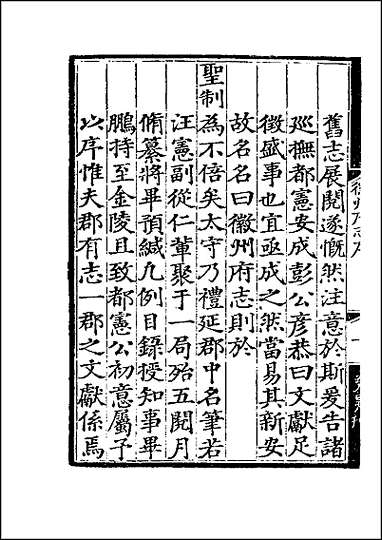 舊志展閱遂慨然注意於斯爰告諸
巡撫都憲安成彭公彥恭曰文獻足
徵盛事也宜亟成之然當易其新安
故名名曰徽州府志則於
聖制為不倍矣太守乃禮延郡中名筆若
汪憲副從仁輩聚于一局殆五閱月
脩纂將畢預緘凡例目錄授知事畢
鵬持至金陵且致都憲公初意屬予
以序惟夫郡有志一郡之文獻係焉